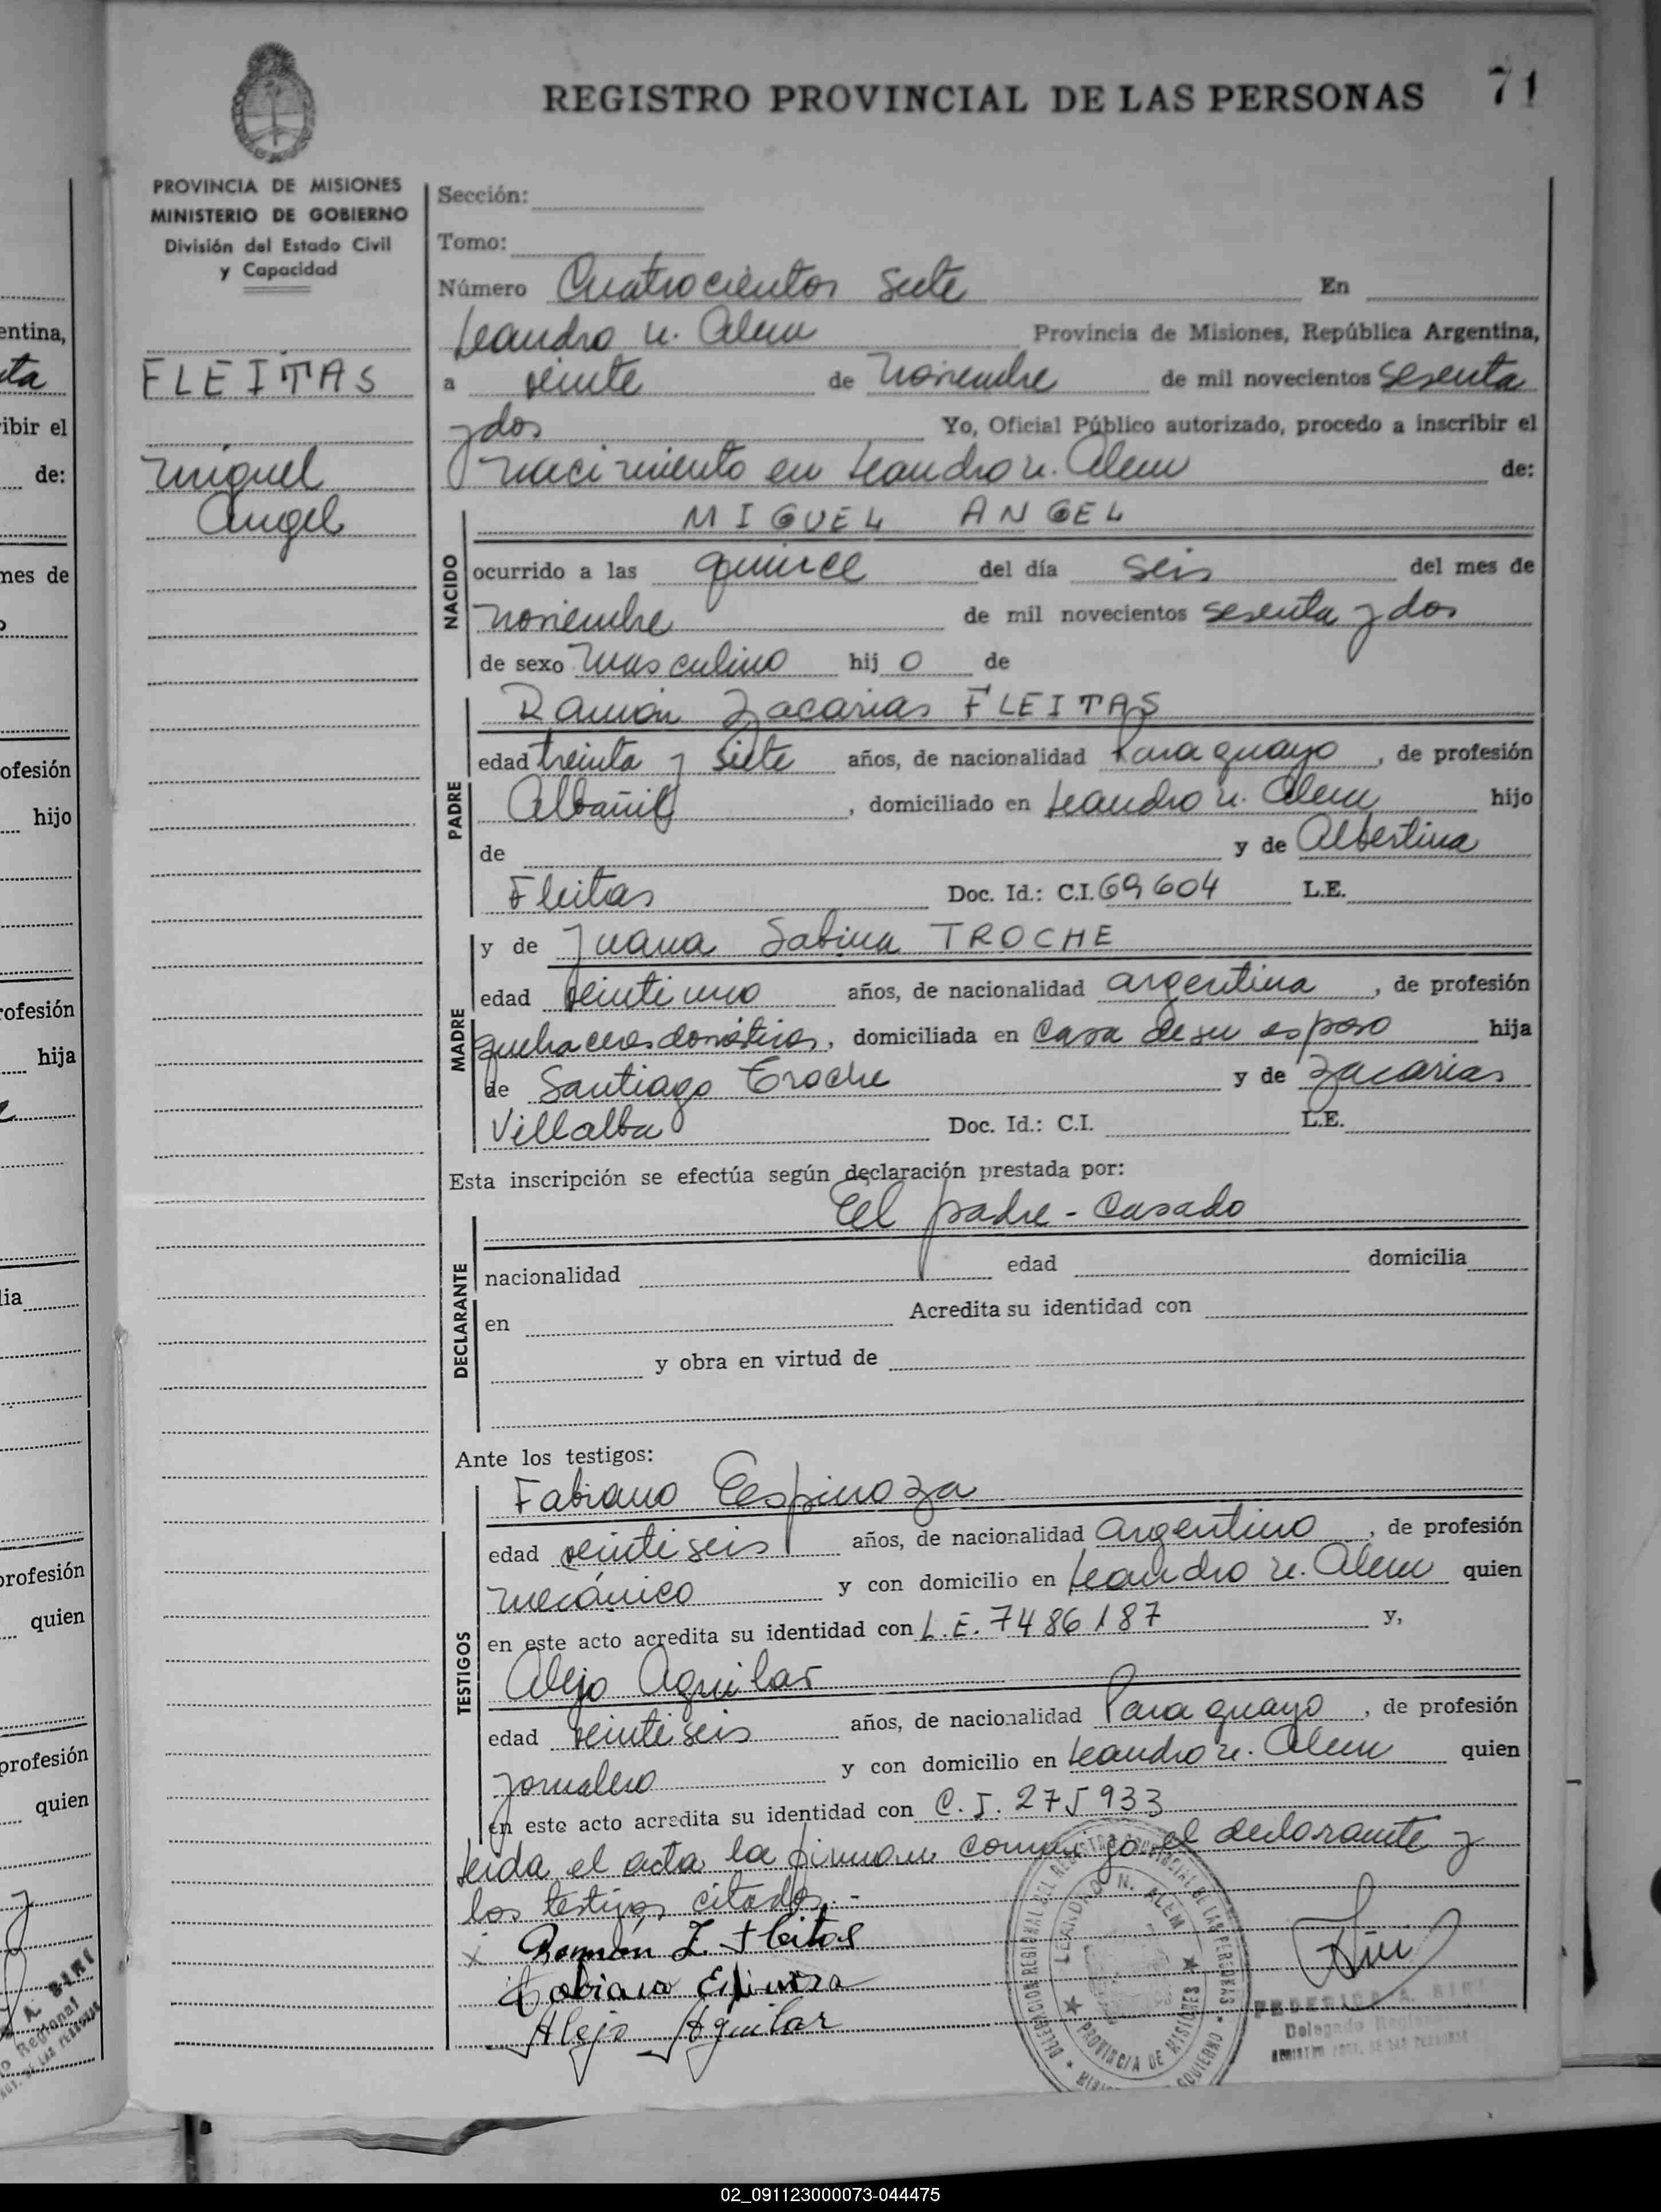 REGISTRO PROVINCIAL DE LAS PERSONAS 71
PROVINCIA DE MISIONES
MINISTERIO DE GOBIERNO
División del Estado Civil
y Capacidad
FLEITAS
Miguel
Angel
Sección:
Tomo:
Número Cuatrocientos siete En
Leandro N. Alem Provincia de Misiones, República Argentina,
a veinte de Noviembre de mil novecientos sesenta
y dos Yo, Oficial Público autorizado, procedo a inscribir el
nacimiento en Leandro N. Alem de:
NACIDO
MIGUEL ANGEL
ocurrido a las quince del día seis del mes de
noviembre de mil novecientos sesenta y dos
de sexo masculino hij o de
PADRE
Ramón Zacarias FLEITAS
edad treinta y siete años, de nacionalidad Paraguayo, de profesión
Albañil, domiciliado en Leandro N. Alem hijo
de y de Albertina
Fleitas Doc. Id.: C.I. 69604 L.E.
MADRE
y de Juana Sabina TROCHE
edad veintiuno años, de nacionalidad argentina, de profesión
quehaceres domésticos, domiciliada en casa de su esposo hija
de Santiago Troche y de Zacarias
Villalba Doc. Id.: C.I. L.E.
Esta inscripción se efectúa según declaración prestada por:
DECLARANTE
El padre - casado
nacionalidad edad domicilia
en Acredita su identidad con
y obra en virtud de
Ante los testigos:
TESTIGOS
Fabiano Espinoza
edad veintiseis años, de nacionalidad argentino, de profesión
mecánico y con domicilio en Leandro N. Alem quien
en este acto acredita su identidad con L.E. 7486187 y,
Alejo Aguilar
edad veintiseis años, de nacionalidad Paraguayo, de profesión
jornalero y con domicilio en Leandro N. Alem quien
en este acto acredita su identidad con C.I. 275933
Leida el acta la firman conmigo el declarante y
los testigos citados.-
x Ramón Z. Fleitas
Fabiano Espinoza
Alejo Aguilar
DELEGACION REGIONAL DEL REGISTRO PROVINCIAL DE LAS PERSONAS
LEANDRO N. ALEM
PROVINCIA DE MISIONES
FEDERICO A. BIRI
Delegado Regional
REGISTRO PROV. DE LAS PERSONAS
entina,
ibir el
de:
mes de
ofesión
hijo
rofesión
hija
lia
profesión
quien
profesión
quien
A. BIRI
Regional
02_091123000073-044475